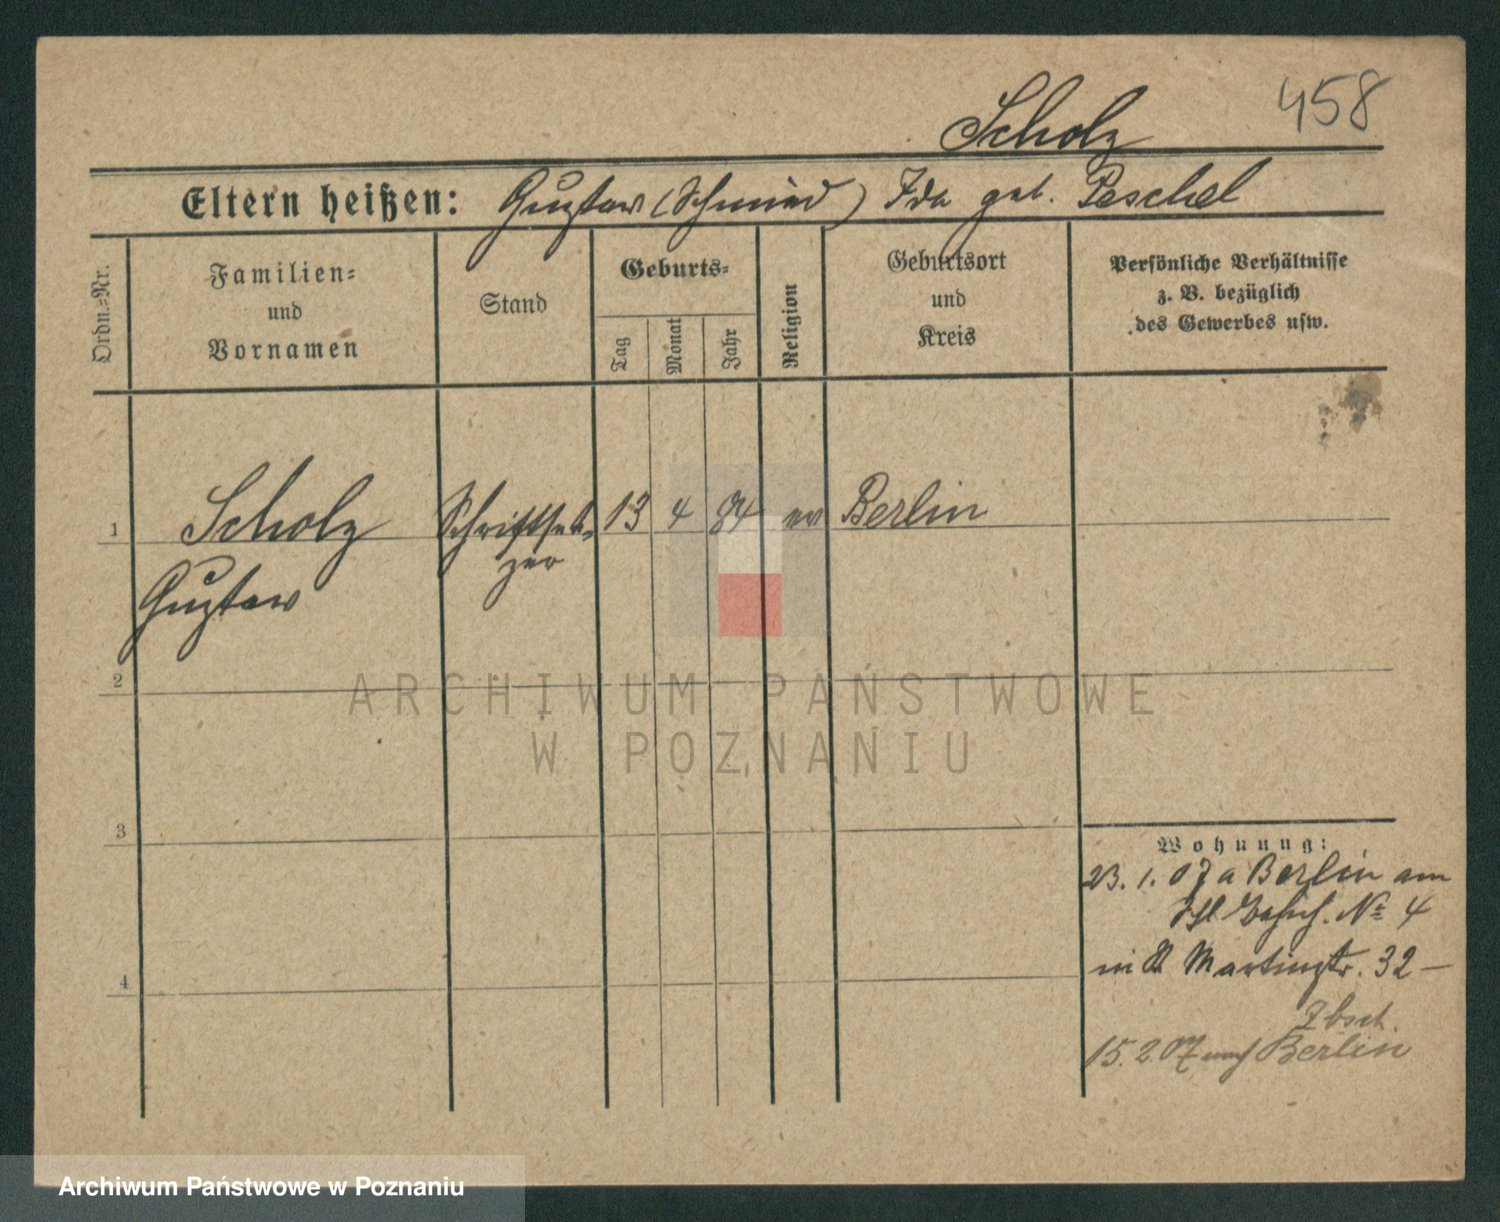 458
Scholz
Eltern heißen: Gustav (Schmied) Ida geb. Peschel
Ordn.=Nr.
Familien=
und
Vornamen
Stand
Geburts=
Tag
Monat
Jahr
Religion
Geburtsort
und
Kreis
Persönliche Verhältnisse
z. B. bezüglich
des Gewerbes usw.
1 Scholz Schriftset- 13 4 84 ev Berlin
zer
Gustav
2
3
4
Wohnung:
23. 1. 07 a Berlin am
No 4
Martinstr. 32 —
15. 2. 07 nach Berlin
ARCHIWUM PAŃSTWOWE
W POZNANIU
Archiwum Państwowe w Poznaniu